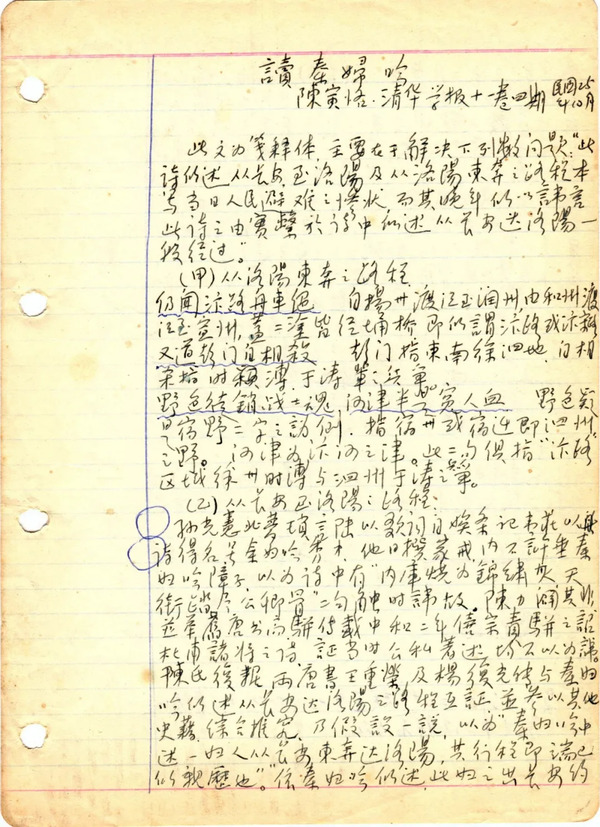 讀秦婦吟
陳寅恪.清华学报十一卷四期 民國25年10月
此文为笺释体,主要在于解决下列数问题:"此
詩所述从长安至洛陽及从洛陽東奔之路程本
当日人民避难之惨状,而其晚年所以諱言
此詩之由實繫於詩中所述从长安达洛陽一
段经过"。
(甲)从洛陽東奔之路程
仍闻汴路舟車絕 自揚州渡江至润州由和州渡
江至宣州,蓋二塗皆经埇橋,即所謂汴路或汴
又道彭门自相殺 彭门指東南徐泗地,自相
杀指时溥于涛軍之
野色徒銷战士魂,河津半是冤人血 野色疑
是宿野二字之訛倒,指宿州或宿迁即泗州
之野。河津为汴河之津。此二句俱指"汴路"
区域徐州时溥与泗州于涛之
(乙)从长安至洛陽之路程:
孙光憲北夢瑣言陸以歌詞自娱条記韦莊以秦
詩得名 他日撰家戒内不許垂秦
妇吟障子,以为詩中有"内庫烧为錦绣灰,天
街踏尽公卿骨"二句触时諱故。陳力闢其非
並举舊唐书高駢传載中和二年僖宗責駢之詔
杜甫諸将之詩,証当时公私著述均不以为諱。
陳氏後据两唐書王重榮及楊復光传与秦妇
吟所述从长安达洛陽之路程互証,並参以其他
史籍,综合推究,乃假設一説,以为"秦妇吟中
述一妇人从长安東奔达洛陽,其行程即端己
所親歷也"。"依秦妇吟所述,此妇之出长安约